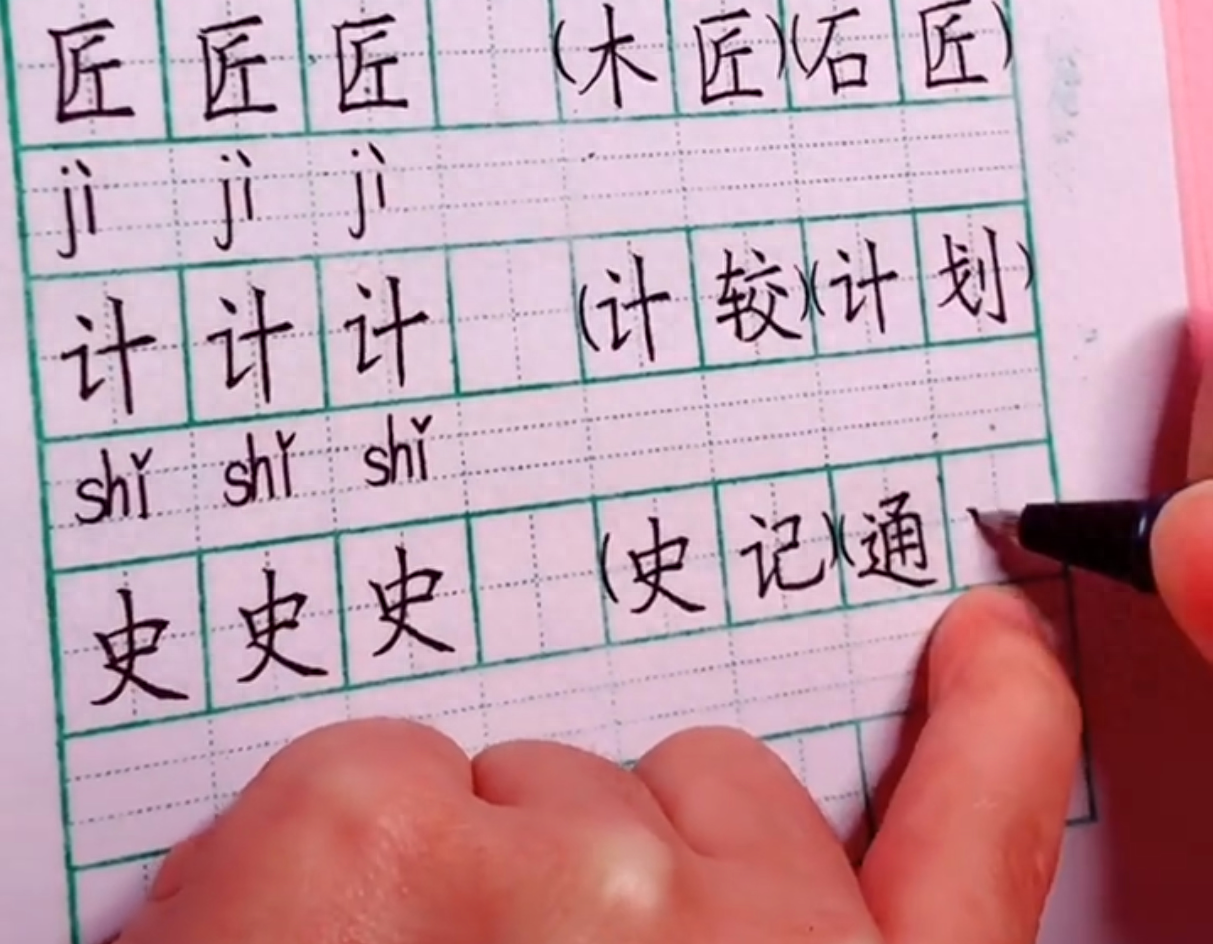 匠 匠 匠 (木匠)(石匠)
jì jì jì
计 计 计 (计较)(计划)
shǐ shǐ shǐ
史 史 史 (史记)(通